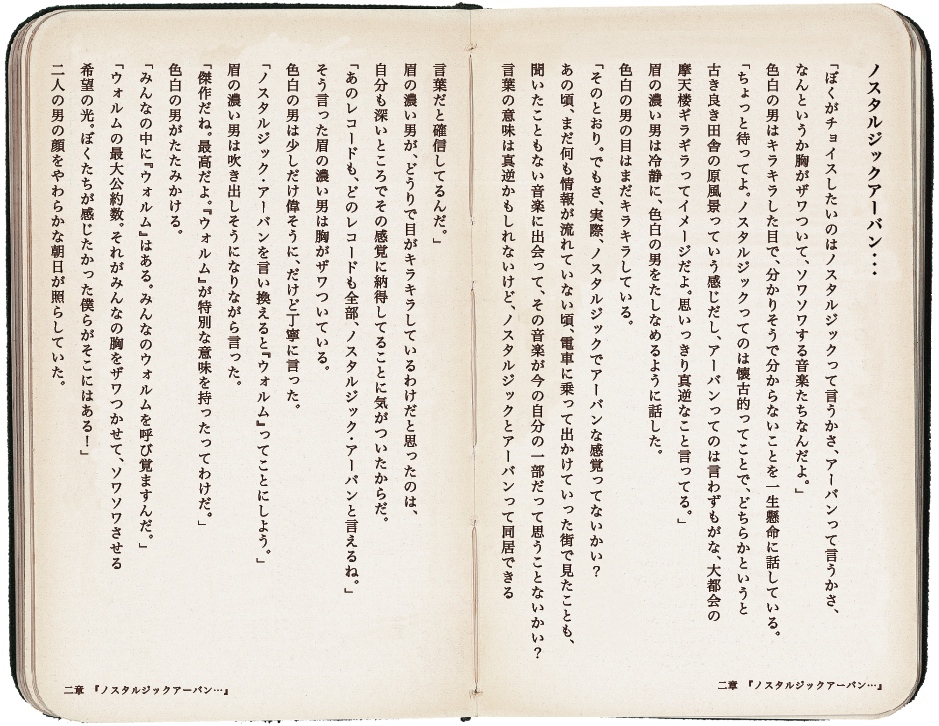 ノスタルジックアーバン…
「ぼくがチョイスしたいのはノスタルジックって言うかさ、アーバンって言うかさ、
なんというか胸がザワついて、ソワソワする音楽たちなんだよ。」
色白の男はキラキラした目で、分かりそうで分からないことを一生懸命に話している。
「ちょっと待ってよ。ノスタルジックってのは懐古的ってことで、どちらかというと
古き良き田舎の原風景っていう感じだし、アーバンってのは言わずもがな、大都会の
摩天楼ギラギラってイメージだよ。思いっきり真逆なこと言ってる。」
眉の濃い男は冷静に、色白の男をたしなめるように話した。
色白の男の目はまだキラキラしている。
「そのとおり。でもさ、実際、ノスタルジックでアーバンな感覚ってないかい？
あの頃、まだ何も情報が流れていない頃、電車に乗って出かけていった街で見たことも、
聞いたこともない音楽に出会って、その音楽が今の自分の一部だって思うことないかい？
言葉の意味は真逆かもしれないけど、ノスタルジックとアーバンって同居できる
二章 『ノスタルジックアーバン…』
言葉だと確信してるんだ。」
眉の濃い男が、どうりで目がキラキラしているわけだと思ったのは、
自分も深いところでその感覚に納得してることに気がついたからだ。
「あのレコードも、どのレコードも全部、ノスタルジック・アーバンと言えるね。」
そう言った眉の濃い男は胸がザワついている。
色白の男は少しだけ偉そうに、だけど丁寧に言った。
「ノスタルジック・アーバンを言い換えると『ウォルム』ってことにしよう。」
眉の濃い男は吹き出しそうになりながら言った。
「傑作だね。最高だよ。『ウォルム』が特別な意味を持ったってわけだ。」
色白の男がたたみかける。
「みんなの中に『ウォルム』はある。みんなのウォルムを呼び覚ますんだ。」
「ウォルムの最大公約数。それがみんなの胸をザワつかせて、ソワソワさせる
希望の光。ぼくたちが感じたかった僕らがそこにはある！」
二人の男の顔をやわらかな朝日が照らしていた。
二章 『ノスタルジックアーバン…』